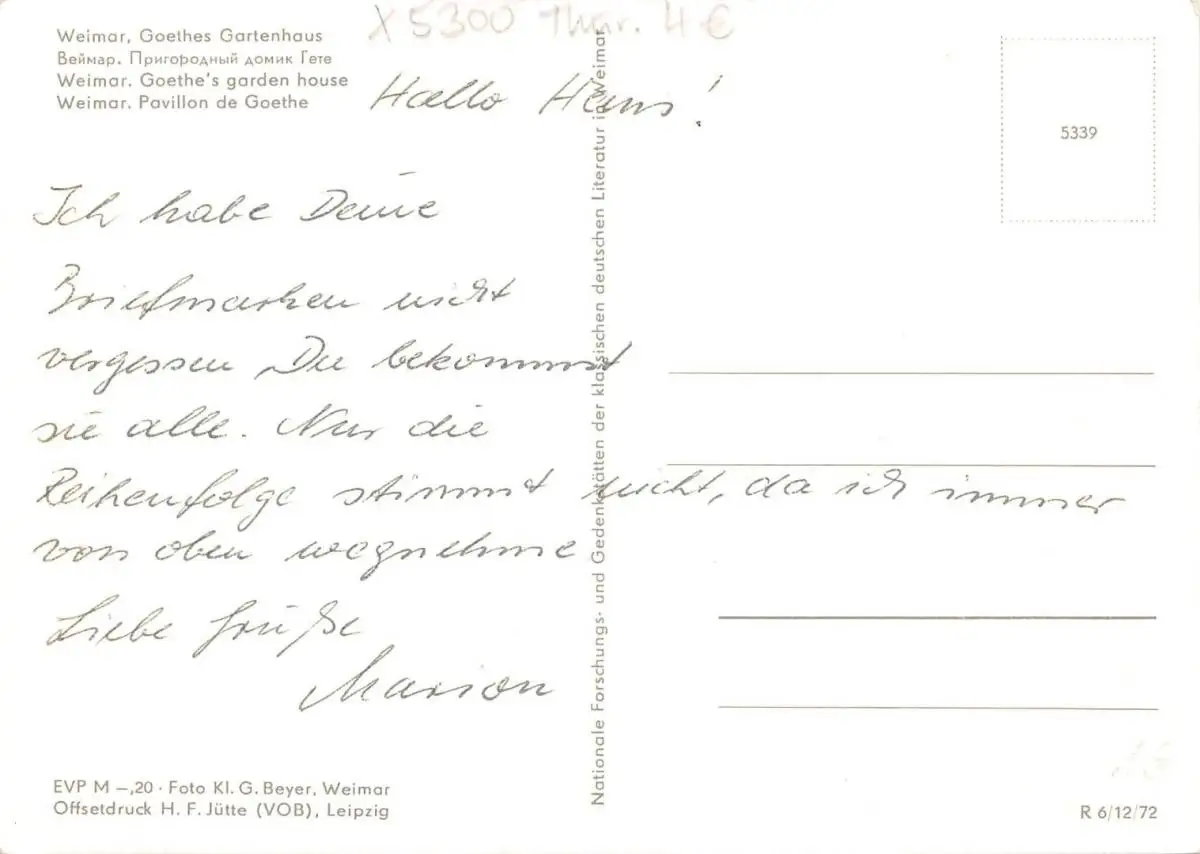 X 5300 Thür. 4 €
Weimar, Goethes Gartenhaus
Веймар. Пригородный домик Гете
Weimar. Goethe's garden house
Weimar. Pavillon de Goethe
Hallo Hans!
Ich habe Deine
Briefmarken nicht
vergessen, Du bekommst
sie alle. Nur die
Reihenfolge stimmt nicht, da ich immer
von oben wegnehme
Liebe Grüße
Marion
EVP M –,20 · Foto Kl. G. Beyer, Weimar
Offsetdruck H. F. Jütte (VOB), Leipzig
Nationale Forschungs- und Gedenkstätten der klassischen deutschen Literatur in Weimar
5339
R 6/12/72